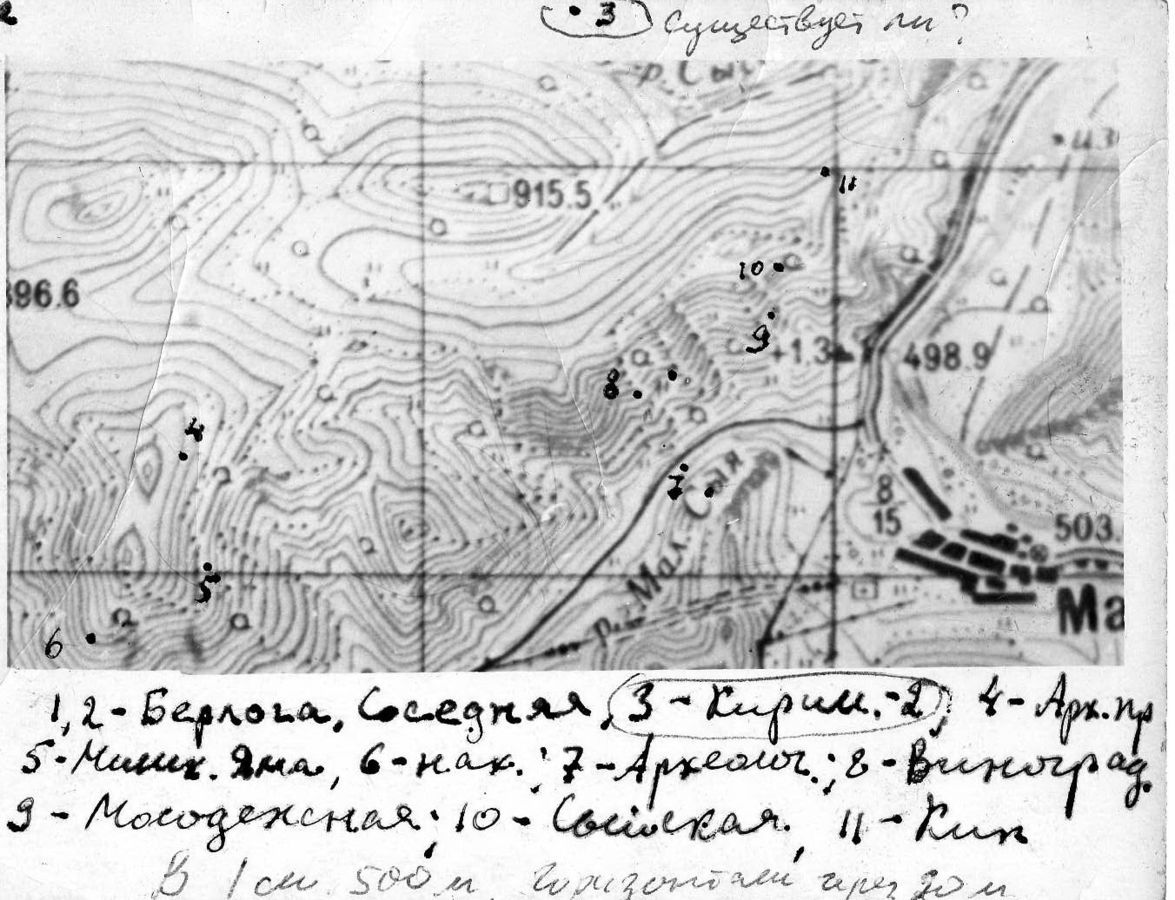 • 3 Существует ли?
р. Сы
915.5
11
10
896.6
9
+1.3
498.9
8
4
7
р. Мал. Сыя
8
15
503.
5
Ма
6
1,2 - Берлога, Соседняя, 3 - Кирил.-2, 4 - Арх. пр
5 - Яма, 6 - нак.; 7 - Археолог.; 8 - Виноград.
9 - Молодежная; 10 - Сыйская, 11 - Кип
В 1 см 500 м, горизонтали через 20 м